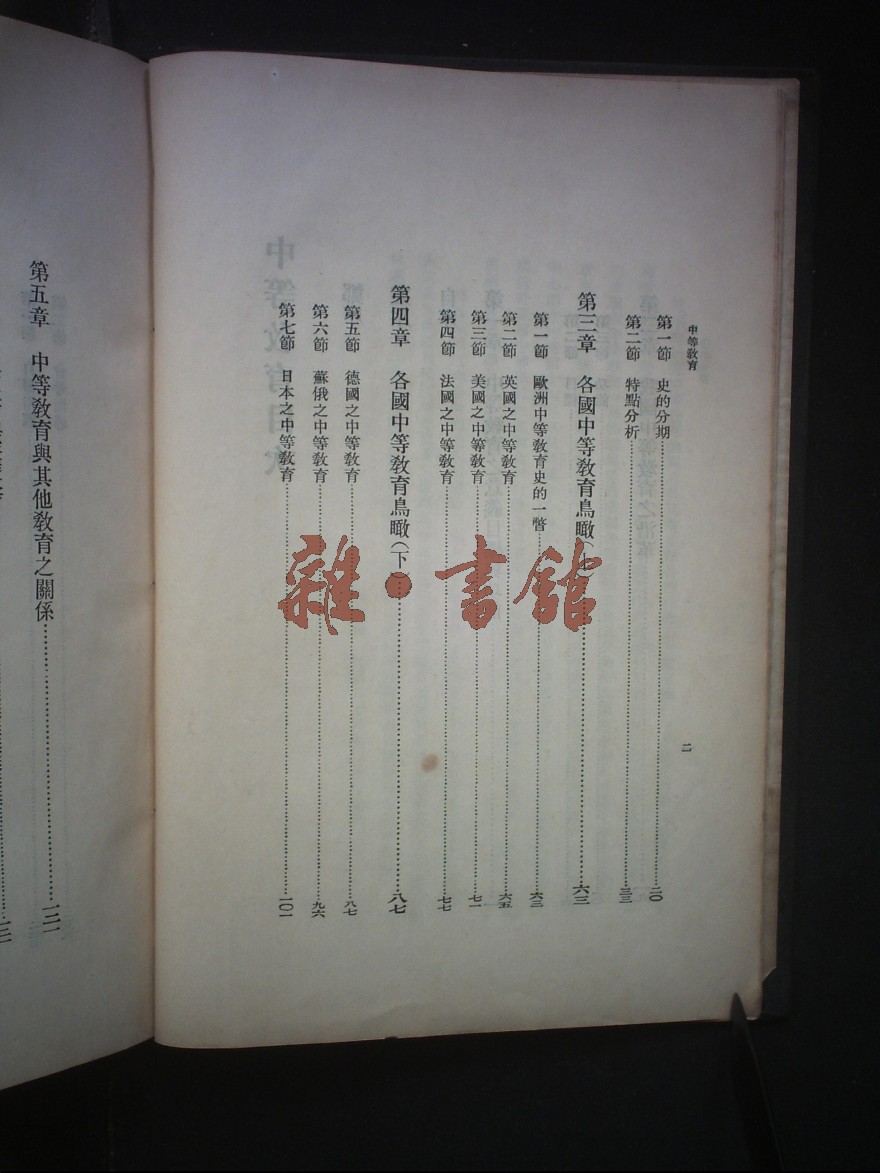 中等教育
二
第一節 史的分期……二〇
第二節 特點分析……三三
第三章 各國中等教育鳥瞰(上)……六三
第一節 歐洲中等教育史的一瞥……六三
第二節 英國之中等教育……六五
第三節 美國之中等教育……七一
第四節 法國之中等教育……七七
第四章 各國中等教育鳥瞰(下)……八七
第五節 德國之中等教育……八七
第六節 蘇俄之中等教育……九六
第七節 日本之中等教育……一〇一
第五章 中等教育與其他教育之關係……一三一
雜·書館